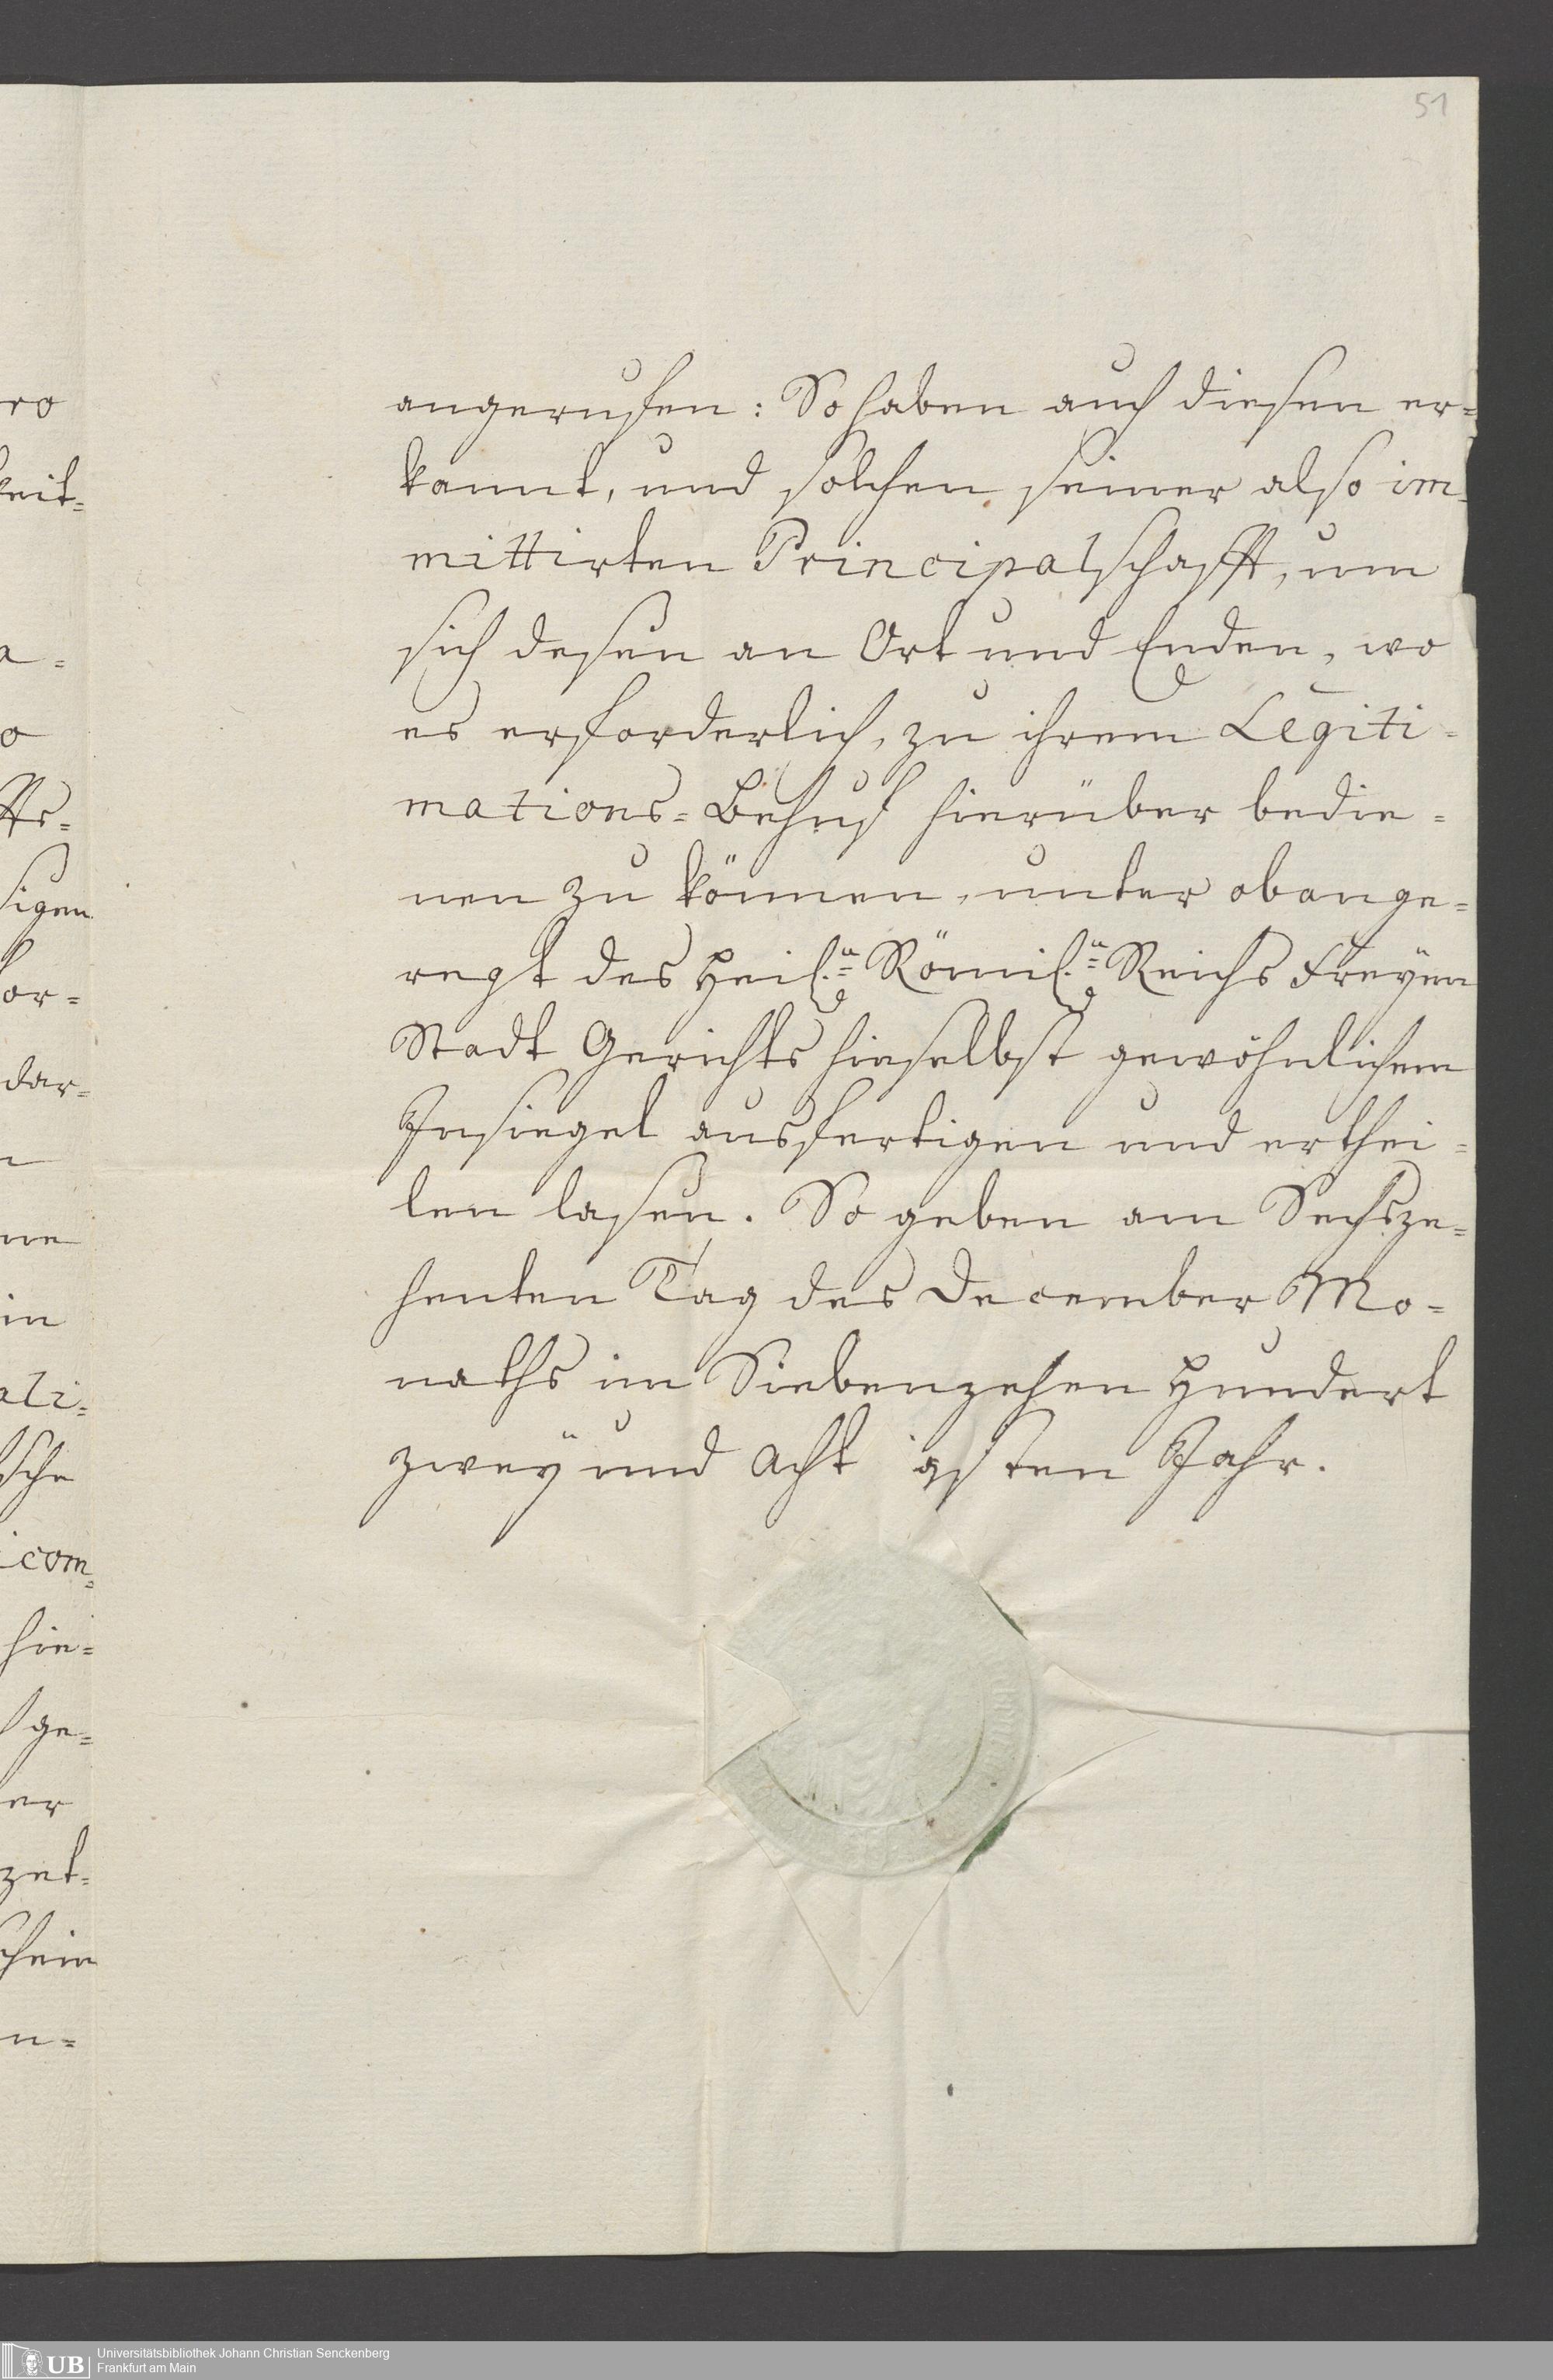 51
angeruffen: So haben auch diesen er=
kannt, und solchen seiner also im=
mittirten Principalschafft, um
sich deßen an Ort und Enden, wo
es erforderlich, zu ihrem Legiti=
mations=Behuf hierüber bedie=
nen zu können, unter obange=
regt des Heil.n Römis.n Reichs Freyen
Stadt Gerichts hieselbst gewöhnlichem
Insiegel ausfertigen und erthei=
len laßen. So geben am Sechsze=
henten Tag des December Mo=
naths im Siebenzehen Hundert
zwey und acht igsten Jahr.
ro
keit=
a=
o
sigen
or=
dar=
n
ne
in
ali=
sche
com=
hie=
ge=
er
zet=
n=
UB
Universitätsbibliothek Johann Christian Senckenberg
Frankfurt am Main